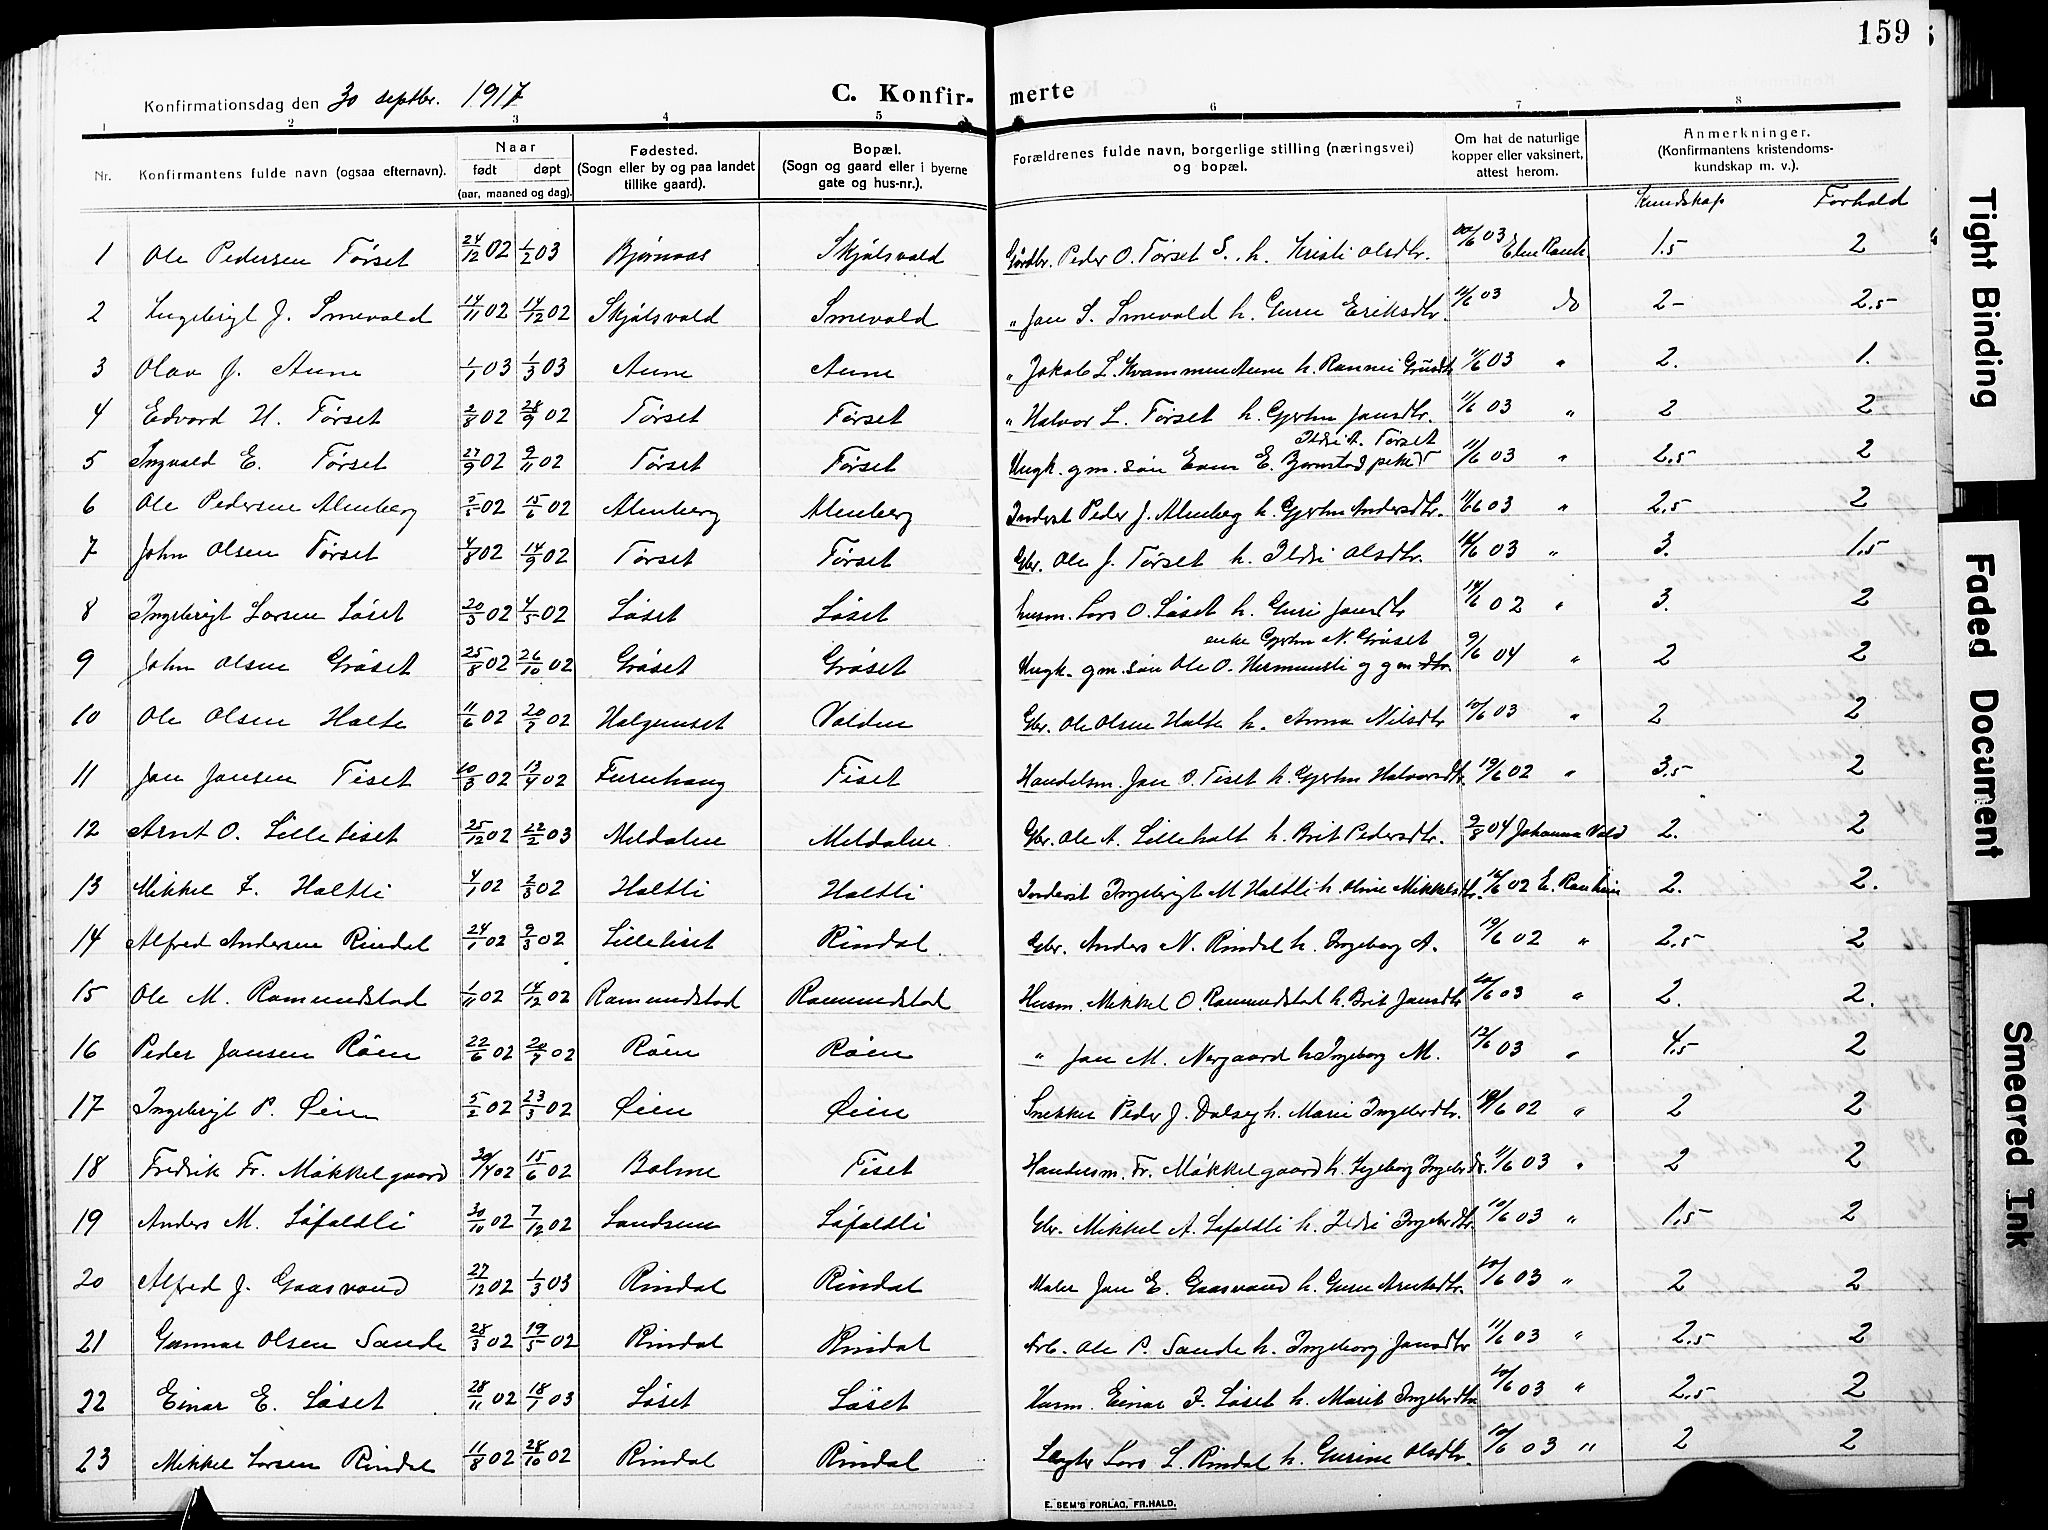 159
Konfirmationsdag den 30 septbr. 1917
C. Konfir- merte
1 2 3 4 5 6 7 8
Nr. Konfirmantens fulde navn (ogsaa efternavn). Naar født døpt (aar, maaned og dag). Fødested. (Sogn eller by og paa landet tillike gaard). Bopæl. (Sogn og gaard eller i byerne gate og hus-nr.). Forældrenes fulde navn, borgerlige stilling (næringsvei) og bopæl. Om hat de naturlige kopper eller vaksinert, attest herom. Anmerkninger. (Konfirmantens kristendoms-kundskap m. v.).
Kundskap Forhold
1 Ole Pedersen Tørset 24/12 02 1/2 03 Bjørnaas Skjølsvold Gårdbr. Peder O. Tørset S. h. Kristi Olsdtr. 10/6 03 1.5 2
2 Ingebrigt J. Smevold 14/11 02 14/12 02 Skjølsvold Smevold " Jan S. Smevold h. Guru Eriksdtr. 11/6 03 do 2- 2.5
3 Olav J. Aune 1/1 03 1/3 03 Aune Aune " Jakob L. Kvammen Aune h. 11/6 03 " 2. 1.
4 Edvard H. Tørset 2/8 02 28/9 02 Tørset Tørset " Halvor L. Tørset h. Gjertru Jansdtr. 11/6 03 " 2 2
5 Ingvald E. Tørset 27/9 02 9/11 02 Tørset Tørset Ungk. gm. søn Even E. Bjørnstad pike Ildri A. Tørset 11/6 03 " 2.5 2
6 Ole Pedersen Almberg 5/5 02 15/6 02 Almberg Almberg Inderst Peder J. Almberg h. Gjertru Andersdtr. 11/6 03 " 2.5 2
7 John Olsen Tørset 4/8 02 14/9 02 Tørset Tørset Gbr. Ole J. Tørset h. Ildri Olsdtr. 10/6 03 " 3. 1.5
8 Ingebrigt Larsen Løset 20/3 02 4/5 02 Løset Løset husm. Lars O. Løset h. Guri Jansdtr 14/6 02 " 3. 2
9 John Olsen Grøset 25/8 02 26/10 02 Grøset Grøset Ungk. gm. søn Ole O. Hermunsli og gm. dtr. enke Gjertru N. Grøset 9/6 04 " 2 2
10 Ole Olsen Holte 11/6 02 20/7 02 Helgemset Volden Gbr. Ole Olsen Holte h. Anna Nilsdtr 10/6 03 " 2 2
11 Jan Jansen Tiset 10/3 02 13/4 02 Furuhaug Tiset Handelsm. Jan O. Tiset h. Gjertru Halvorsdtr. 19/6 02 " 3.5 2
12 Arnt O. Lilletiset 25/12 02 22/2 03 Meldalen Meldalen Gbr. Ole A. Lilleholt h. Brit Pedersdtr. 9/8 04 Johanna Vold 2. 2
13 Mikkel I. Holtli 4/1 02 2/3 02 Holtli Holtli Inderst Ingebrigt M Holtli h. Oline Mikkelsdtr. 16/6 02 E. Ranheim 2. 2.
14 Alfred Andersen Rindal 24/1 02 9/3 02 Lilletiset Rindal Gbr. Anders N. Rindal h. Ingeborg A. 19/6 02 " 2.5 2
15 Ole M. Romundstad 1/11 02 14/12 02 Romundstad Romundstad Husm. Mikkel O. Romundstad h. Brit Jansdtr 10/6 03 " 2. 2.
16 Peder Jansen Røen 22/6 02 20/7 02 Røen Røen " Jan M. Nergaard h Ingeborg M. 12/6 03 " 4.5 2
17 Ingebrigt P. Øien 5/2 02 23/3 02 Øien Øien Snekker Peder J. Dalseg h. Marie Ingebrdtr. 18/6 02 " 2 2
18 Fredrik Fr. Møkkelgaard 30/4 02 15/6 02 Bolme Tiset Handelsm. Fr. Møkkelgaard h. Ingeborg Ingebrdtr. 11/6 03 " 2 2
19 Anders M. Løfaldli 30/10 02 7/12 02 Sandsem Løfaldli Gbr. Mikkel A. Løfaldli h. Ildri Ingebrdtr. 10/6 03 " 1.5 2
20 Alfred J. Gaasvand 27/12 02 1/3 03 Rindal Rindal Maler Jan E. Gaasvand h. Guru Arntsdtr. 10/6 03 " 2 2
21 Gunnar Olsen Sande 28/3 02 19/5 02 Rindal Rindal Arb. Ole P. Sande h. Ingeborg Jansdtr 11/6 03 " 2.5 2
22 Einar E. Løset 28/11 02 18/1 03 Løset Løset Husm. Einar I. Løset h. Marit Ingebrdtr 10/6 03 " 2.5 2
23 Mikkel Larsen Rindal 11/8 02 28/10 02 Rindal Rindal Slagter Lars L. Rindal h. Gurine Olsdtr. 10/6 03 " 2 2
E. SEM'S FORLAG, FR.HALD.
Tight Binding
Faded Document
Smeared Ink